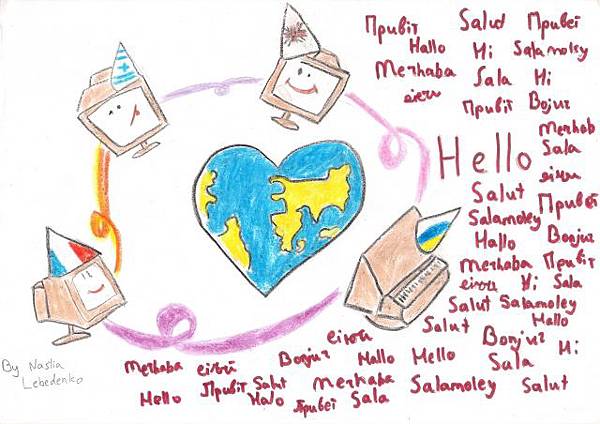 Привіт Salut Привеї
Hallo Hi Salamoley
Merhaba Sala Hi
Привіт Bonjur
Merhab
Hello Sala
Salut Привеї
Salamoley
Hallo Bonjur
Merhaba Привіт
Hi Sala
Salut Salamoley
Hallo
Salut
Bonjur Hi
Merhaba Bonjur Hallo Hello Sala
Hello Привіт Salut Merhaba Salamoley Salut
Halo Привеї Sala
By Nastia
Lebedenko